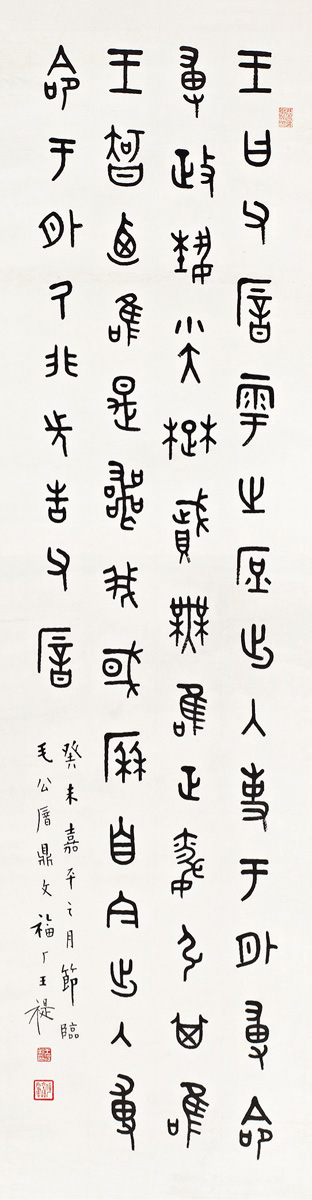 王曰父厝雩之庶出入事于外尃命
尃政埶小大楚賦無唯正聞引其唯
王智迺唯是喪我或歷自今出入尃
命于外厥非先告父厝
癸未嘉平之月節臨
毛公厝鼎文福厂王禔